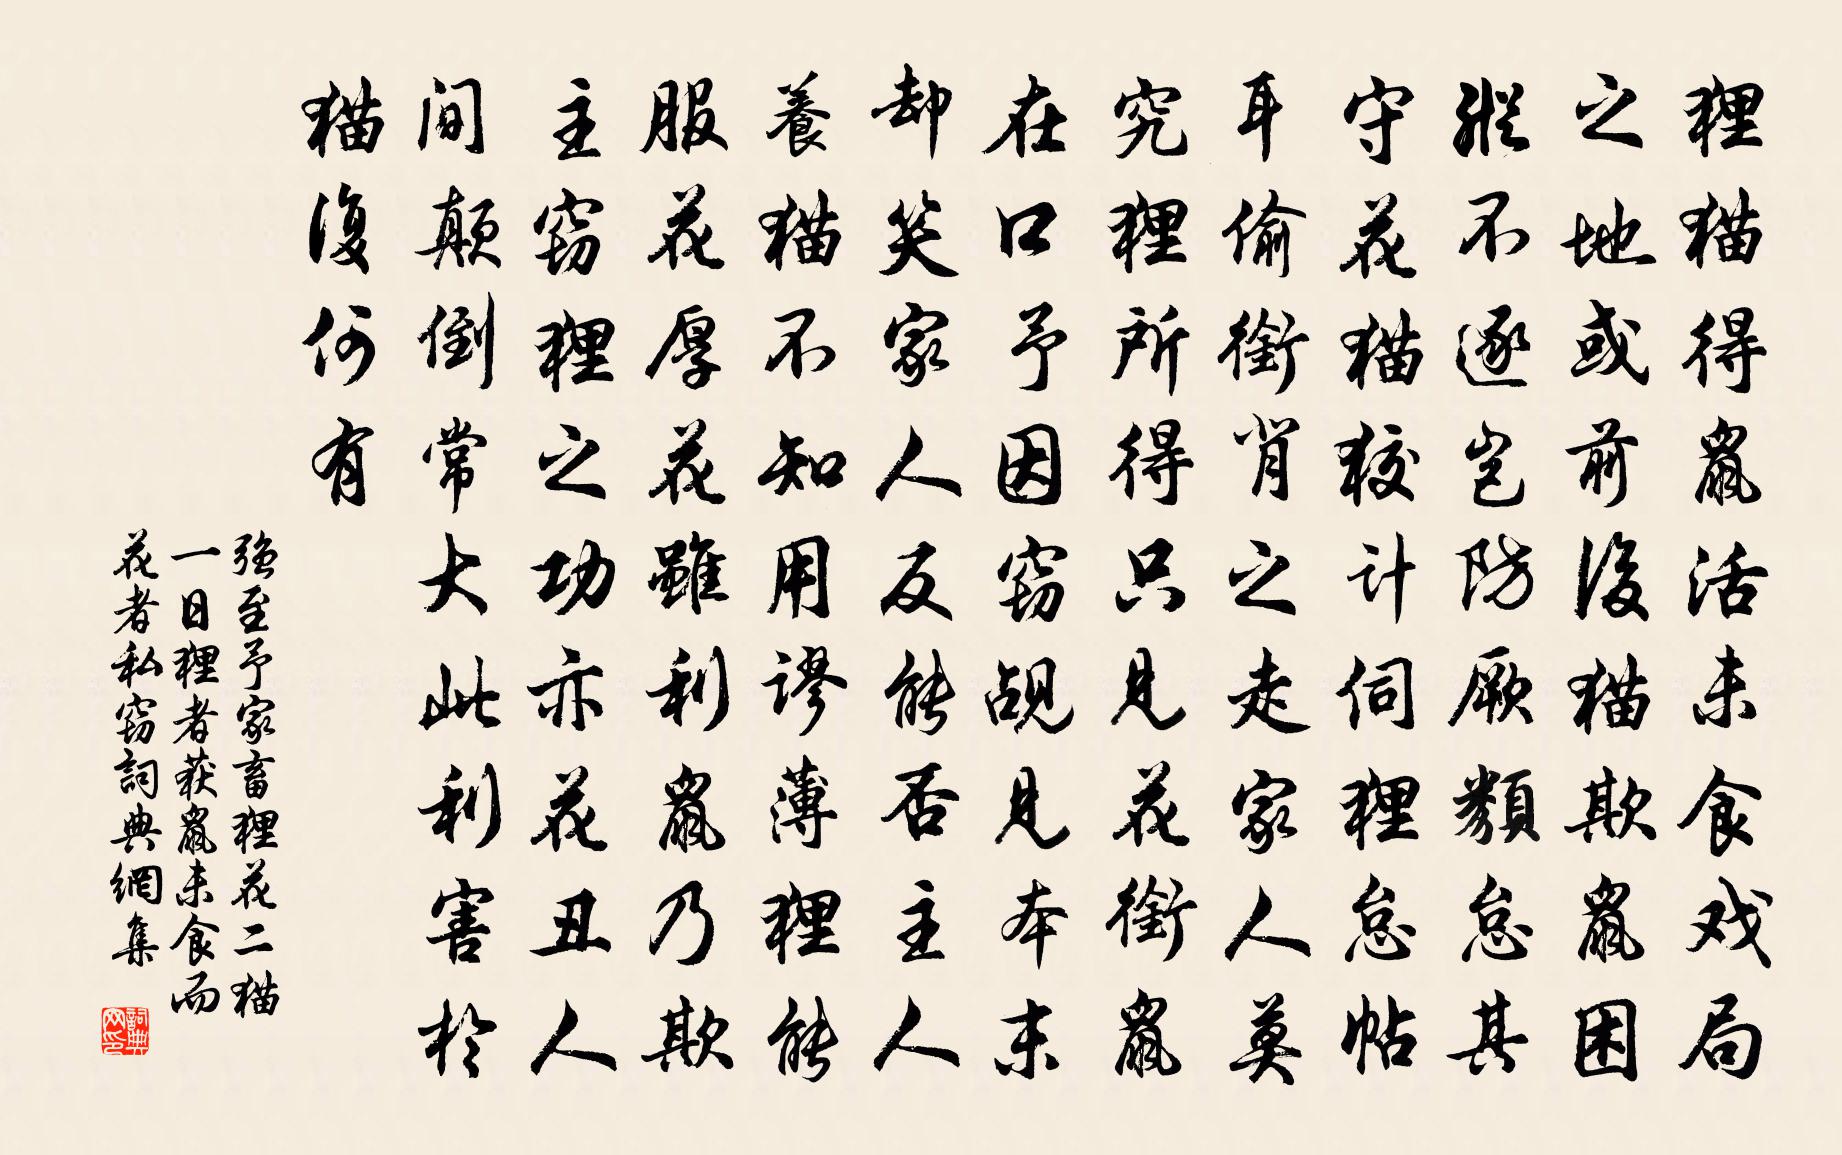 狸猫得鼠活未食戏局
之地或前後猫欺鼠困
纵不逐岂防厥类怠其
守花猫狡计伺狸怠帖
耳偷衔背之走家人莫
究狸所得只见花衔鼠
在口予因窃觇见本末
却笑家人反能否主人
养猫不知用谬薄狸能
服花厚花虽利鼠乃欺
主窃狸之功亦花丑人
间颠倒常大此利害於
猫復何有
强至予家畜狸花二猫
一日狸者获鼠未食而
花者私窃詞典網集
詞典网印